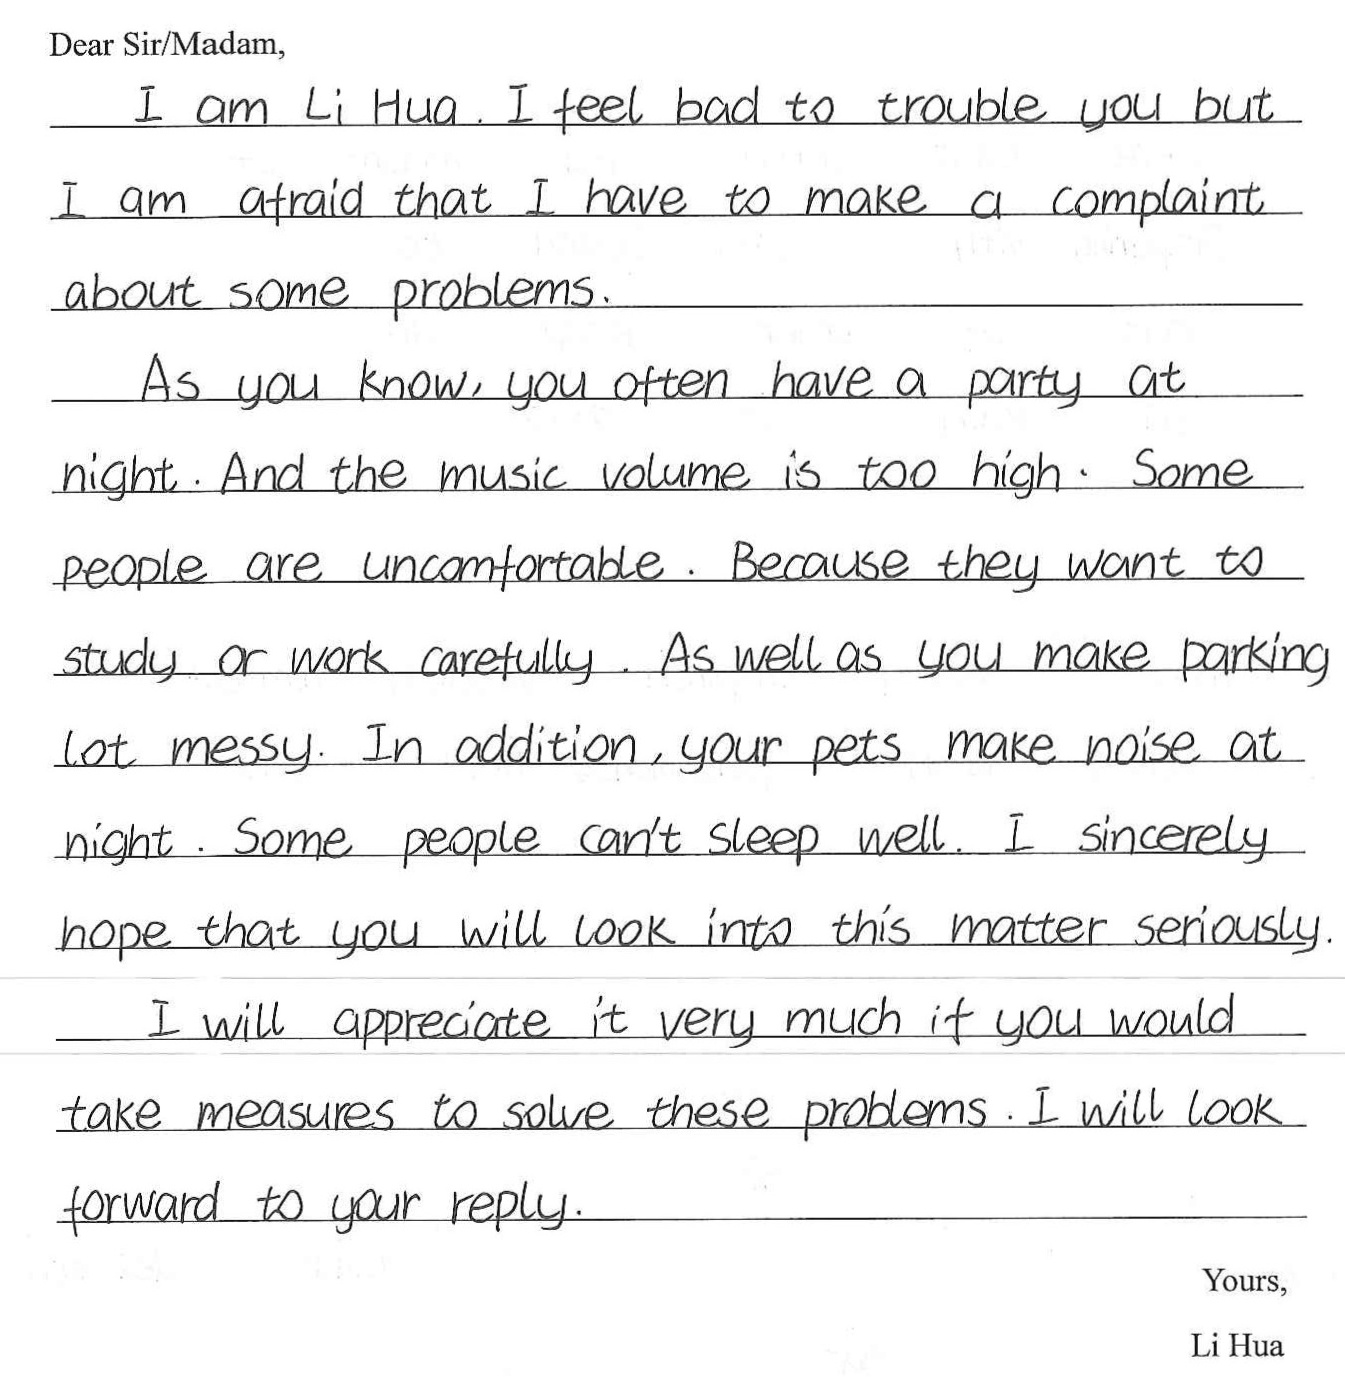 Dear Sir/Madam,
I am Li Hua. I feel bad to trouble you but
I am afraid that I have to make a complaint
about some problems.
As you know, you often have a party at
night. And the music volume is too high. Some
people are uncomfortable. Because they want to
study or work carefully. As well as you make parking
lot messy. In addition, your pets make noise at
night. Some people can't sleep well. I sincerely
hope that you will look into this matter seriously.
I will appreciate it very much if you would
take measures to solve these problems. I will look
forward to your reply.
Yours,
Li Hua